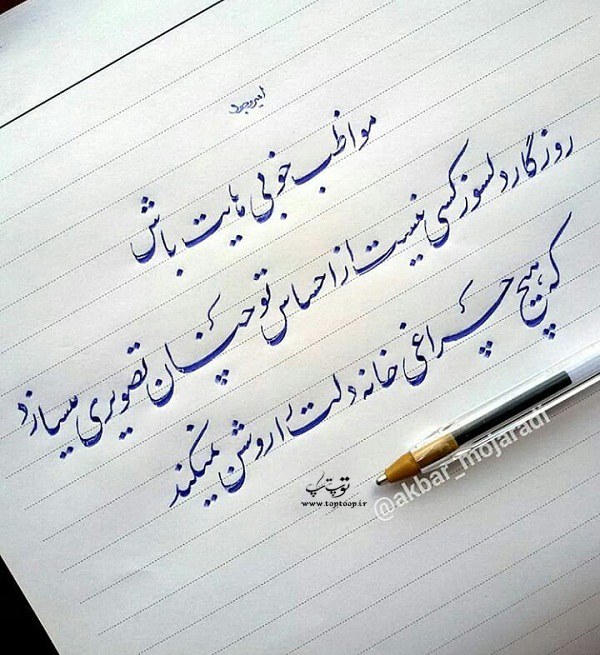 مواظب خوبی هایت باش
روزگار دلسوز کسی نیست از احساس تو چنان تصویری میسازد
که هیچ چراغی خانه دلت را روشن نمیکند
توپ تاپ
www.toptoop.ir
@akbar_mojaradi